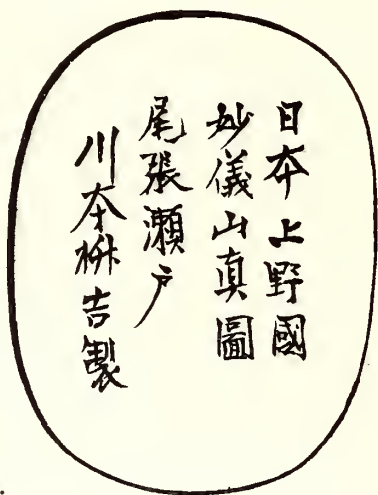 日本上野國
妙儀山真圖
尾張瀬戸
川本桝吉製